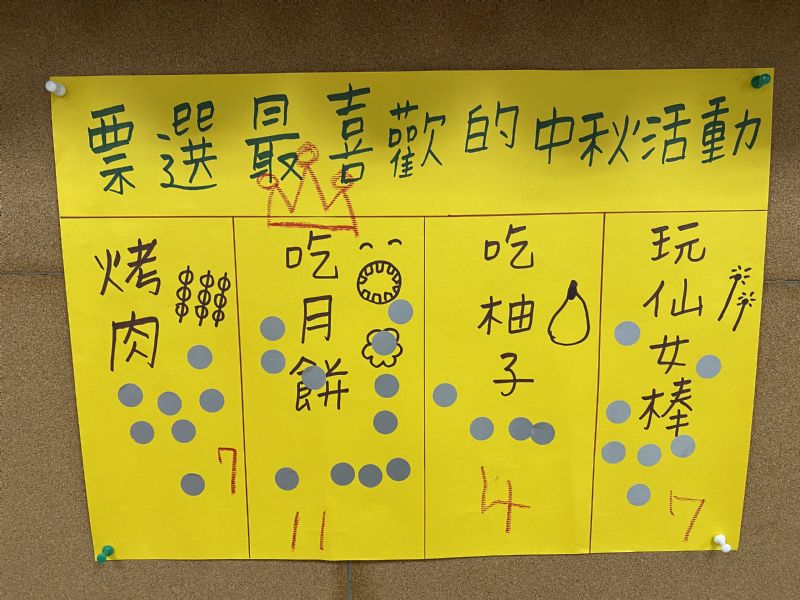 票選最喜歡的中秋活動
烤肉
7
吃月餅
11
吃柚子
4
玩仙女棒
7